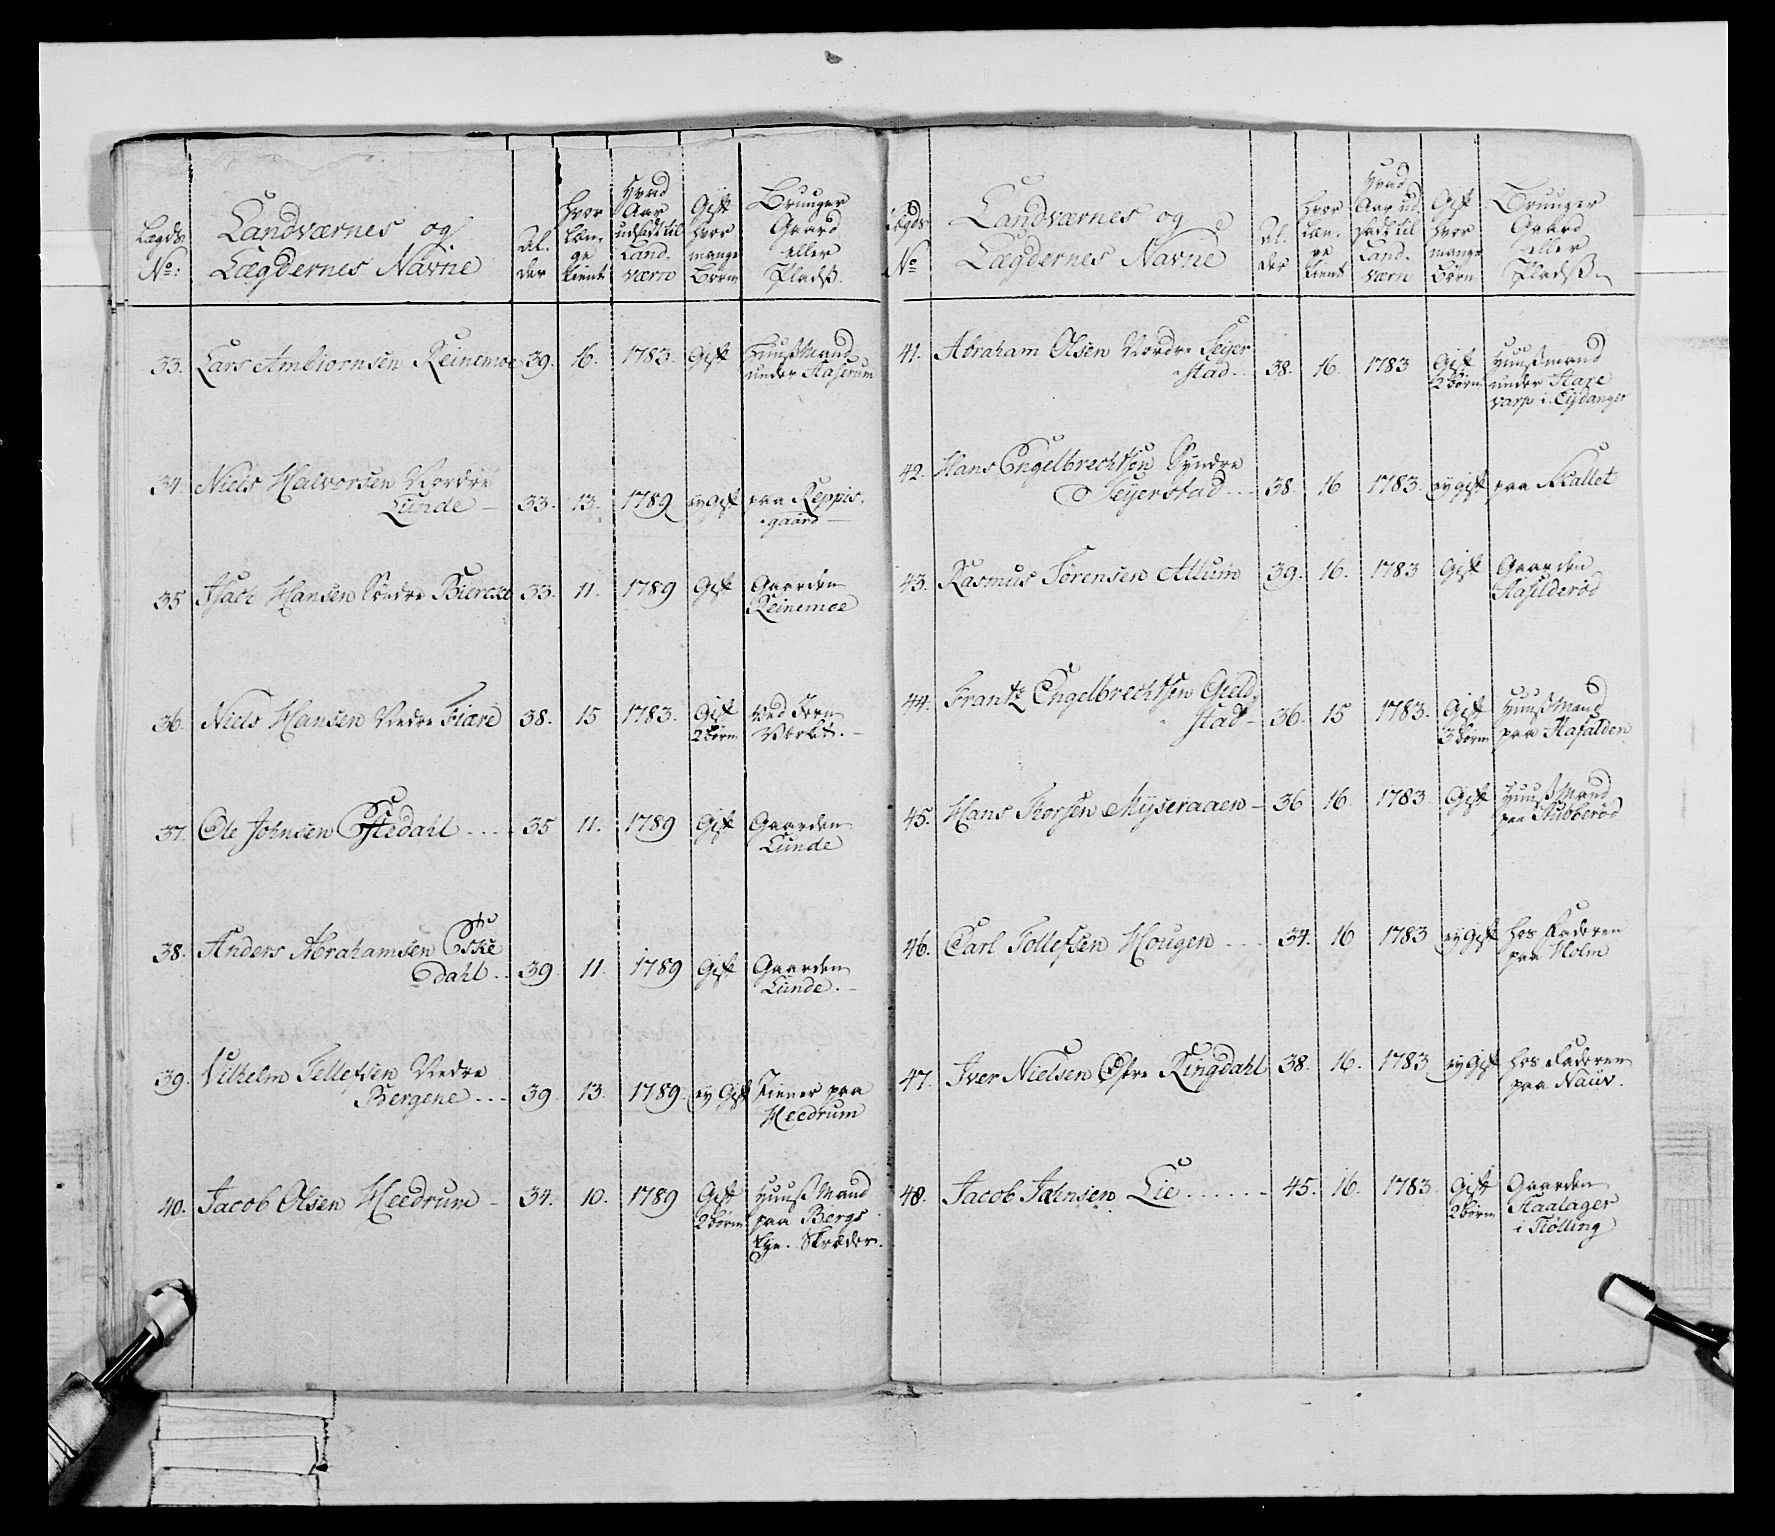 Lægds No:
Landværnes og Lægdernes Navne
Alder
Hvor længe tient
Hvad Aar udsadt til Landværn
Gift hvor mange Børn
Bruuger Gaard eller Pladss.
33. Lars Ambiornsen Reinemoe 39. 16. 1783. Gift Huussmand
under
34. Niels Halvorsen Nordre
Lunde 33. 13. 1789 ey Gift paa Reppis-
gaard
35 Isach Hansen Söndre Biercke 33. 11. 1789 Gift Gaarden
Reinemoe
36. Niels Hansen Nedre Fiære 38. 15 1783. Gift Ved
2 børn
37. Ole Johnsen 35 11. 1789 Gift Gaarden
Lunde
38. Anders Abrahamsen Eske
Dahl 39 11. 1789 Gift Gaarden
Lunde.
39. Vilhelm Tellefsen Nedre
Bergene 39 13. 1789. ey Gift Tiener paa
Heedrum
40. Jacob Olsen Heedrum 34. 10. 1789 Gift Huussmand
2 børn paa Bergs
Eje. Skræder.
Lægds No
Landværnes og Lægdernes Navne
Alder
Hvor længe tient
Hvad Aar udsadt til Landværn
Gift hvor mange Børn
Bruuger Gaard eller Pladss.
41. Abraham Olsen Nordre Seijer
stad 38. 16. 1783 Gift Huussmand
børn under
varp i Eijdanger
42. Hans Engelbrechtsen Syndre
Seijerstad 38. 16 1783. ey gift paa Skallet
43. Rasmus Sørensen Allum 39. 16. 1783 Gift Gaarden
44. Frantz Engelbrechtsen Gield
stad 36. 15 1783. Gift Huussmand
3 børn paa
45. Hans Thorsen Mijseraaen 36 16 1783 Gift Huussmand
paa
46. Carl Tollefsen Hougen 34. 16 1783 ey Gift hos Faderen
paa Holm
47. Iver Nielsen Østre Ringdahl 38. 16. 1783 ey Gift hos Faderen
paa
48. Jacob Jahnsen Lie 45. 16. 1783 Gift Gaarden
2 børn Haalager
i Kölling